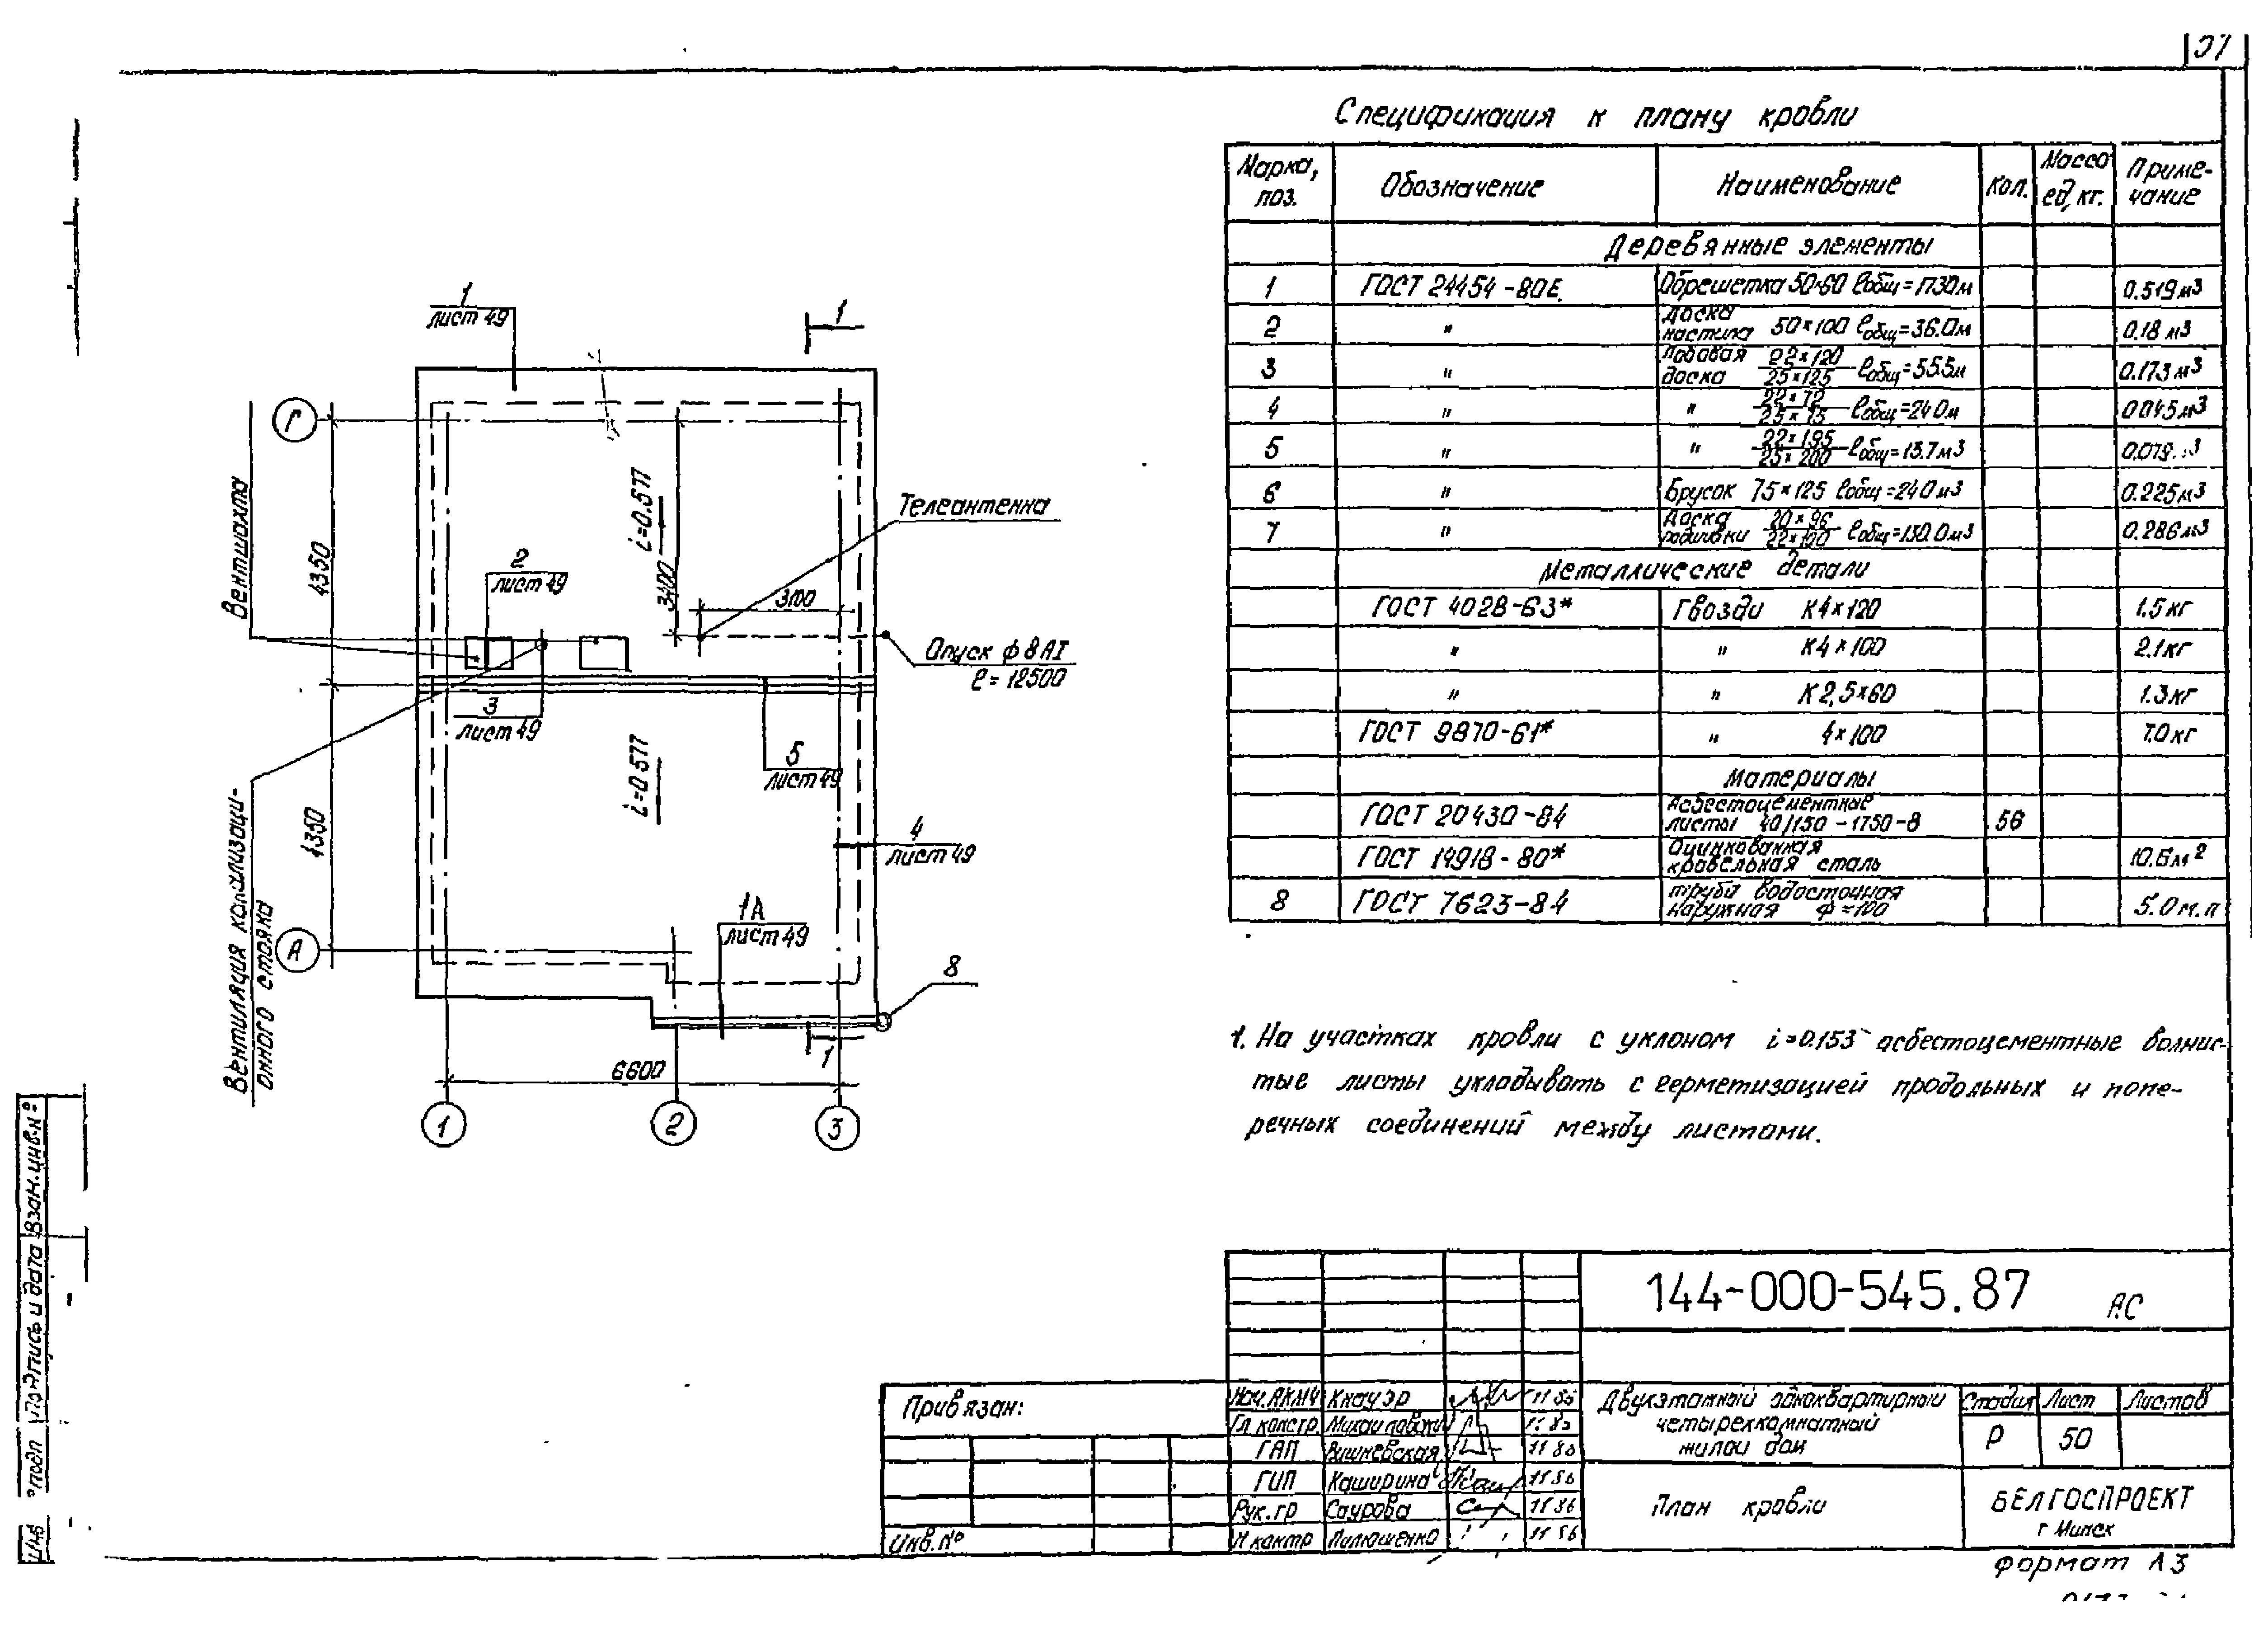 37
Спецификация к плану кровли
Марка, поз. Обозначение Наименование Кол. Масса ед, кг. Примечание
Деревянные элементы
1 ГОСТ 24454-80Е. Обрешетка 50×60 ℓобщ=173.0м 0.519м³
2 " Доска настила 50×100 ℓобщ=36.0м 0.18 м³
3 " Лобовая доска 22×120/25×125 ℓобщ=55.5м 0.173м³
4 " " 22×72/25×75 ℓобщ=24.0м 0.045м³
5 " " 22×195/25×200 ℓобщ=15.7м³
6 " Брусок 75×125 ℓобщ=24.0м³ 0.225м³
7 " Доска подшивки 20×96/22×100 ℓобщ=130.0м³ 0.286м³
Металлические детали
ГОСТ 4028-63* Гвозди К4×120 1.5кг
" " К4×100 2.1кг
" " К2,5×60 1.3кг
ГОСТ 9870-61* " 4×100 7.0кг
Материалы
ГОСТ 20430-84 Асбестоцементные листы 40/150-1750-8 56
ГОСТ 14918-80* Оцинкованная кровельная сталь 10.6м²
8 ГОСТ 7623-84 Труба водосточная наружная ф=100 5.0м.п
1. На участках кровли с уклоном i=0.153 асбестоцементные волнис-
тые листы укладывать с герметизацией продольных и попе-
речных соединений между листами.
1
лист 49
1
Г
Вентшахта
4350
i=0.577
3400
Телеантенна
3100
2
лист 49
Опуск ф8АI
ℓ=12500
3
лист 49
5
лист 49
i=0.577
4350
4
лист 49
1А
лист 49
Вентиляция канализаци-
онного стояка
А
8
1
6600
1
2
3
Взам.инв.№
Подпись и дата
Инв № подл
144-000-545.87 АС
Привязан:
Инв.№
Нач.АКМ4 Кнауэр
Гл констр. Михайловский
ГАП Вишневская
ГИП Каширина 11 86
Рук.гр Саурова 11 86
Н контр Пилюшенко 11 86
Двухэтажный одноквартирный
четырехкомнатный
жилой дом
Стадия Лист Листов
Р 50
План кровли
БЕЛГОСПРОЕКТ
г Минск
Формат А3